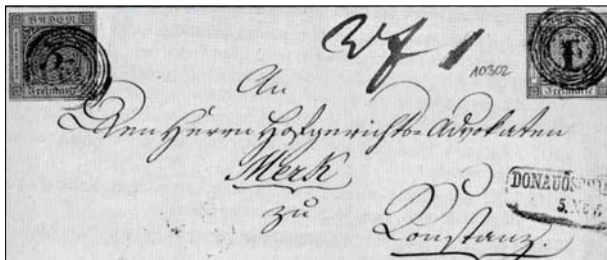 BADEN
Freimarke
1
10302
An
Den Herrn Hofgerichts-Advokaten
Merk
zu
Constanz.
DONAUÖS
5.